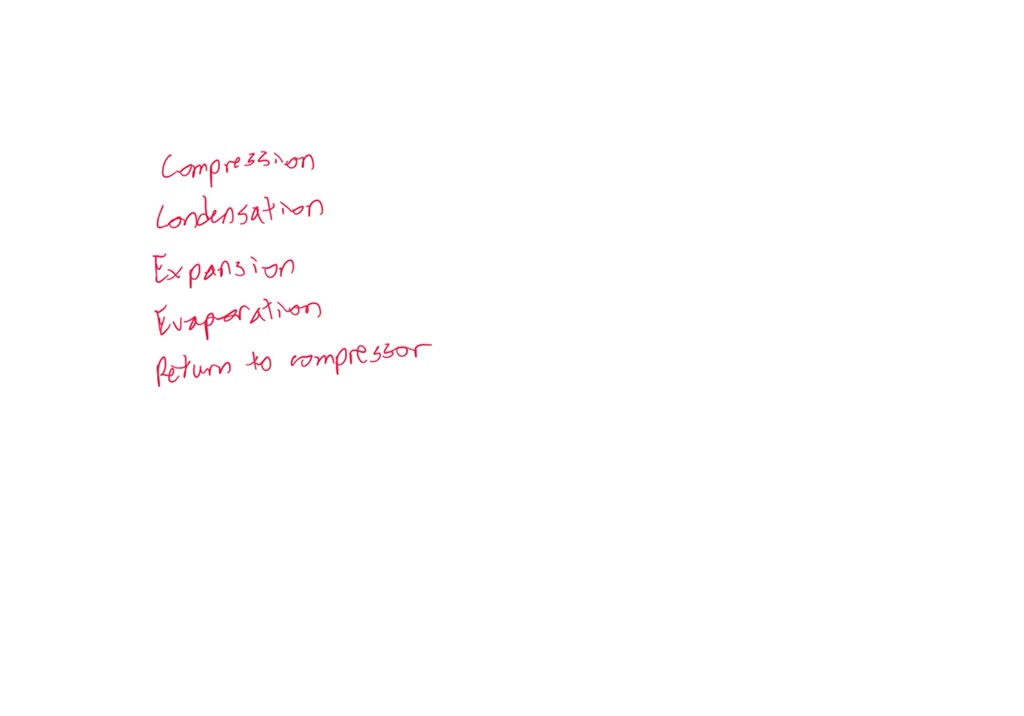 Compression
Condensation
Expansion
Evaporation
Return to compressor